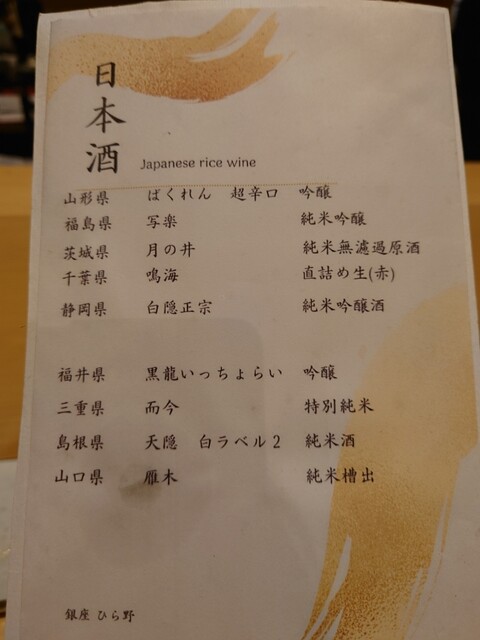 日本酒
Japanese rice wine
山形県 ばくれん 超辛口 吟醸
福島県 写楽 純米吟醸
茨城県 月の井 純米無濾過原酒
千葉県 鳴海 直詰め生(赤)
静岡県 白隠正宗 純米吟醸酒
福井県 黒龍いっちょらい 吟醸
三重県 而今 特別純米
島根県 天隠 白ラベル2 純米酒
山口県 雁木 純米槽出
銀座 ひら野